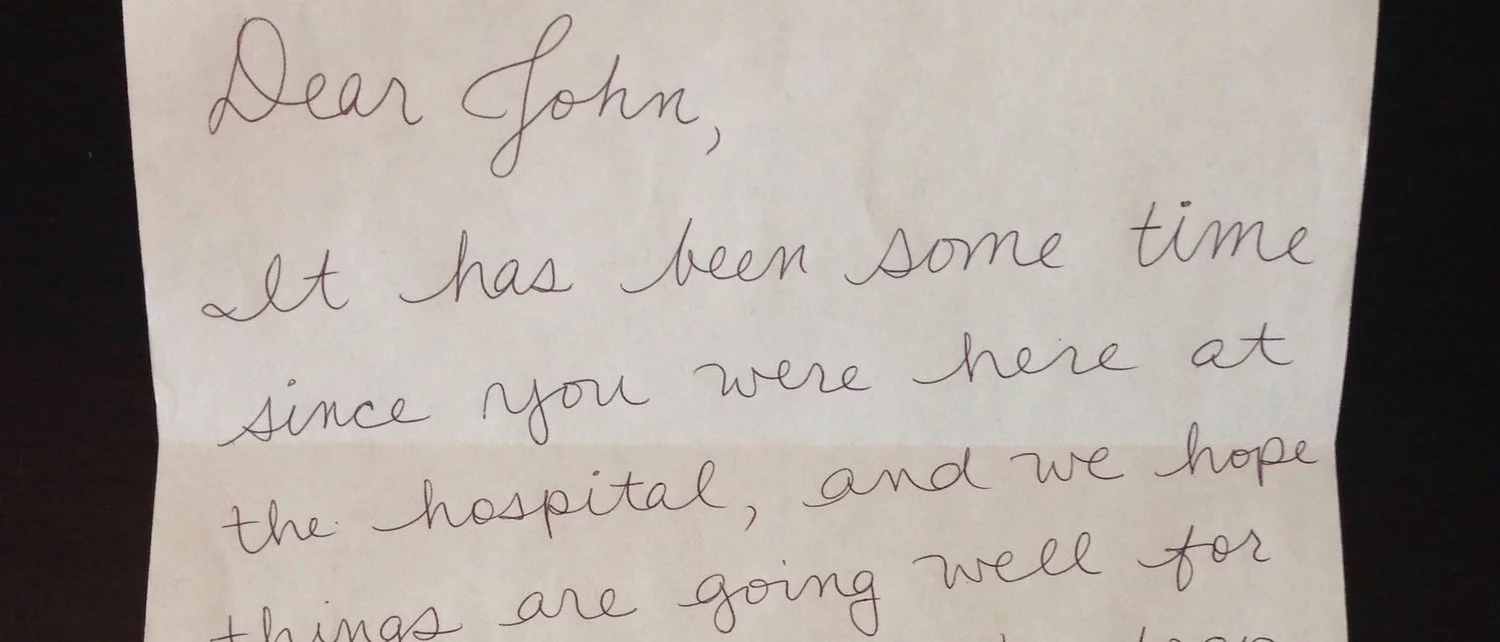 Dear John,
It has been some time
since you were here at
the hospital, and we hope
things are going well for